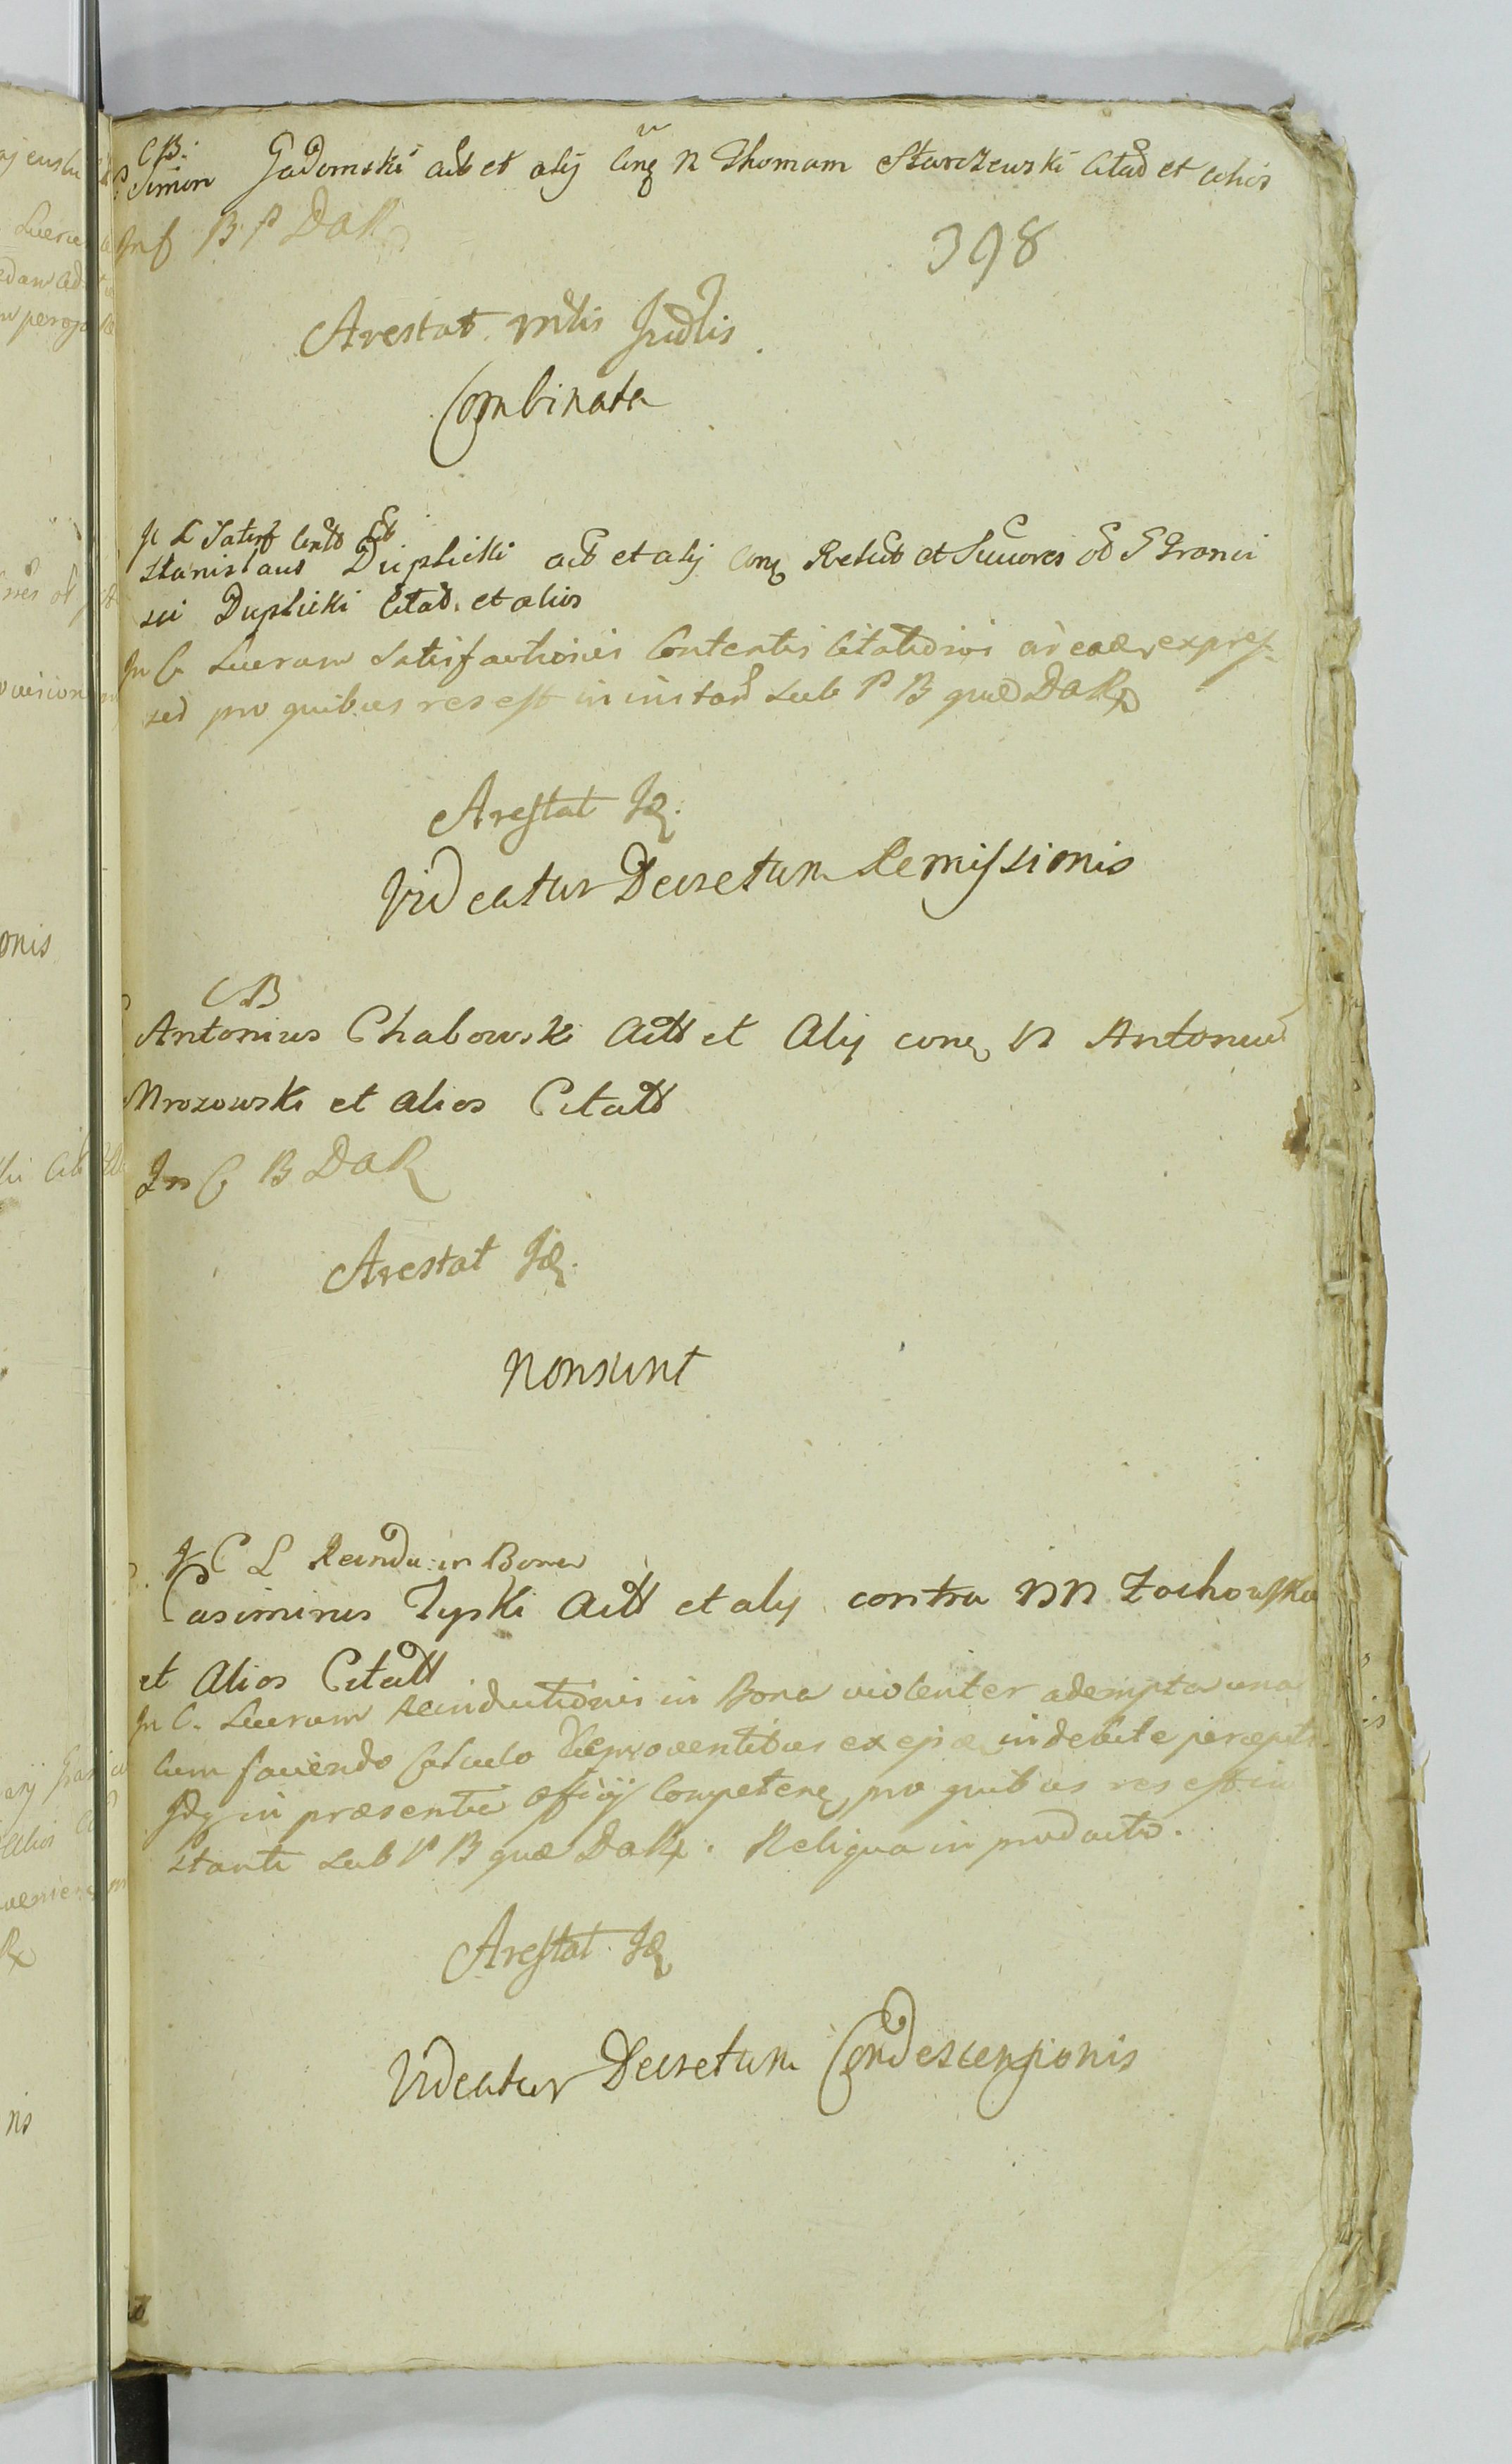 CB.
Simon Gadomski act et alij cong N Thomam Starczewski Citat et alios
In C B P DaR
398
Arestat Mtis Judlis
Combinata
Stanislaus Duplicki act et alij cong Relict et Succores ol S Franci
sci Duplicki Citat. et alios
In C Lucrum Satisfactionis Contentis Citationis expres
sed pro quibus res est in instan sub P B quæ DaR
Arestat Id.
Videatur Decretum Remissionis
CB
Antonius Chabowski Actt et Alij cong N Antonium
Mrozowski et alios Citatt
In C B DaR
Arestat Id.
Nonsunt
C L Reindu: in Bona
Casimirus Zyski Actt et alij contra NN Zochowski
et Alios Citatt
In C. Lucrum Reinductionis in Bona violenter adempta una
cum faciendo Calculo de proventibus ex eisdem indebite percept
in præsentia Officij Competeng pro quibus res est in
stanti sub P B quæ DaR. Reliqua in producto.
Arestat Id
Videatur Decretum Condescensionis